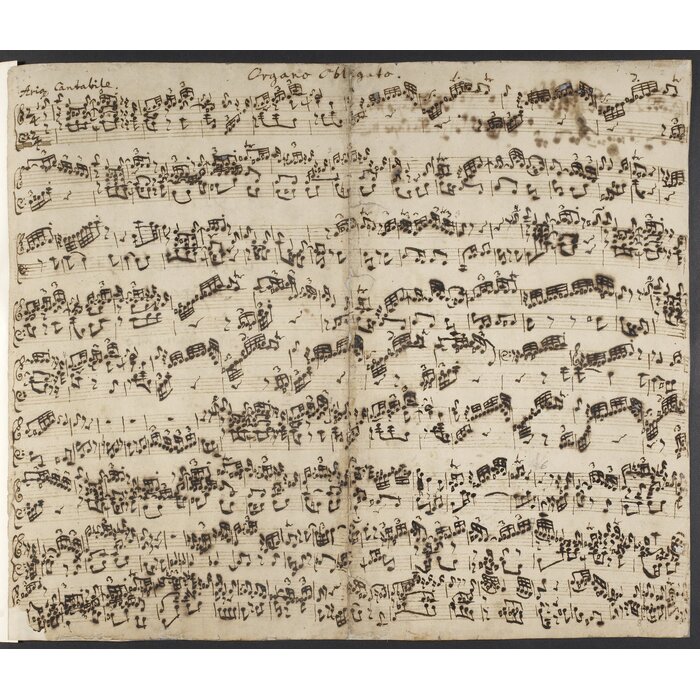 Organo Obligato.
Aria Cantabile.